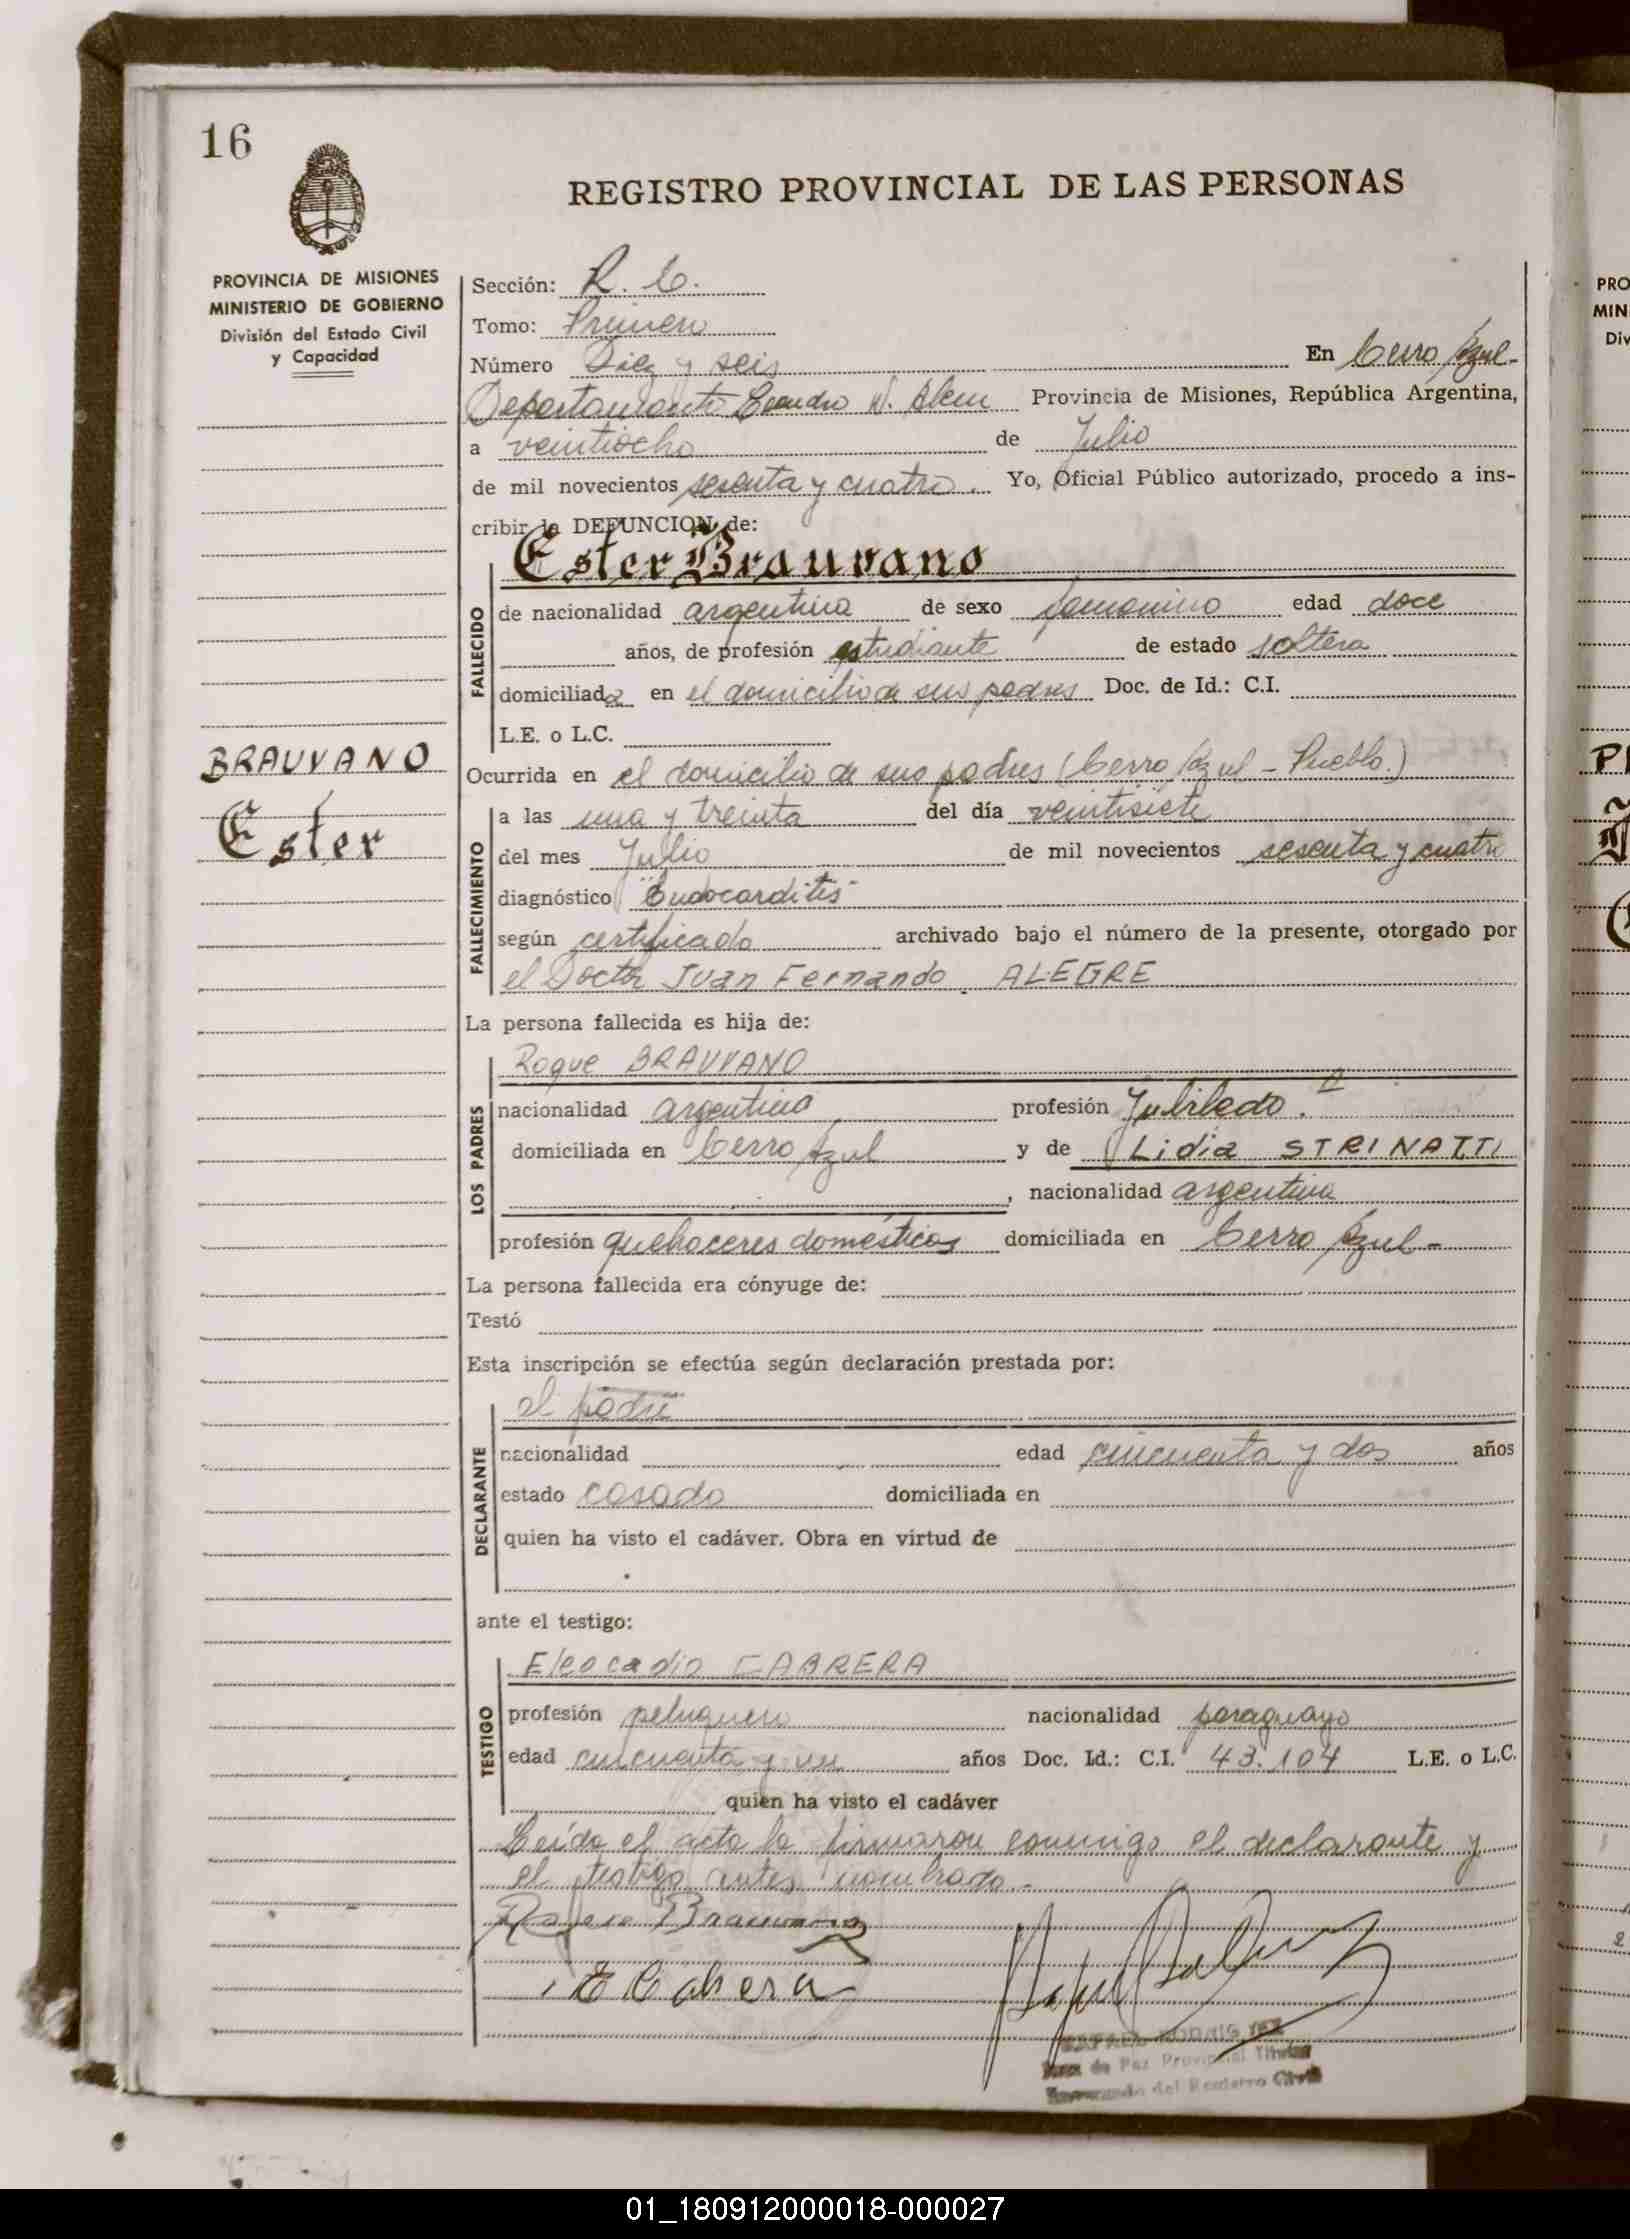 16
REGISTRO PROVINCIAL DE LAS PERSONAS
PROVINCIA DE MISIONES
MINISTERIO DE GOBIERNO
División del Estado Civil
y Capacidad
BRAUVANO
Ester
Sección: R. C.
Tomo: Primero
Número Diez y seis En Cerro Azul-
Departamento Leandro N. Alem Provincia de Misiones, República Argentina,
a veintiocho de Julio
de mil novecientos sesenta y cuatro. Yo, Oficial Público autorizado, procedo a ins-
cribir la DEFUNCION de:
Ester Brauvano
FALLECIDO
de nacionalidad argentina de sexo femenino edad doce
años, de profesión estudiante de estado soltera
domiciliada en el domicilio de sus padres Doc. de Id.: C.I.
L.E. o L.C.
Ocurrida en el domicilio de sus padres (Cerro Azul - Pueblo.)
FALLECIMIENTO
a las una y treinta del día veintisiete
del mes Julio de mil novecientos sesenta y cuatro
diagnóstico "Endocarditis"
según certificado archivado bajo el número de la presente, otorgado por
el Doctor Juan Fernando ALEGRE
La persona fallecida es hija de:
LOS PADRES
Roque BRAUVANO
nacionalidad argentina profesión Jubilado.
domiciliada en Cerro Azul y de Lidia STRINATTI
, nacionalidad argentina
profesión quehaceres domésticos domiciliada en Cerro Azul-
La persona fallecida era cónyuge de:
Testó
Esta inscripción se efectúa según declaración prestada por:
DECLARANTE
el padre
nacionalidad edad cincuenta y dos años
estado casado domiciliada en
quien ha visto el cadáver. Obra en virtud de
ante el testigo:
TESTIGO
Eleocadio CABRERA
profesión peluquero nacionalidad paraguayo
edad cincuenta y un años Doc. Id.: C.I. 43.104 L.E. o L.C.
quien ha visto el cadáver
Leída el acta la firmaron conmigo el declarante y
el testigo antes nombrado.-
E Cabrera
Juez de Paz Provincial Titular
Encargado del Registro Civil
PRO
MIN
Div
01_180912000018-000027